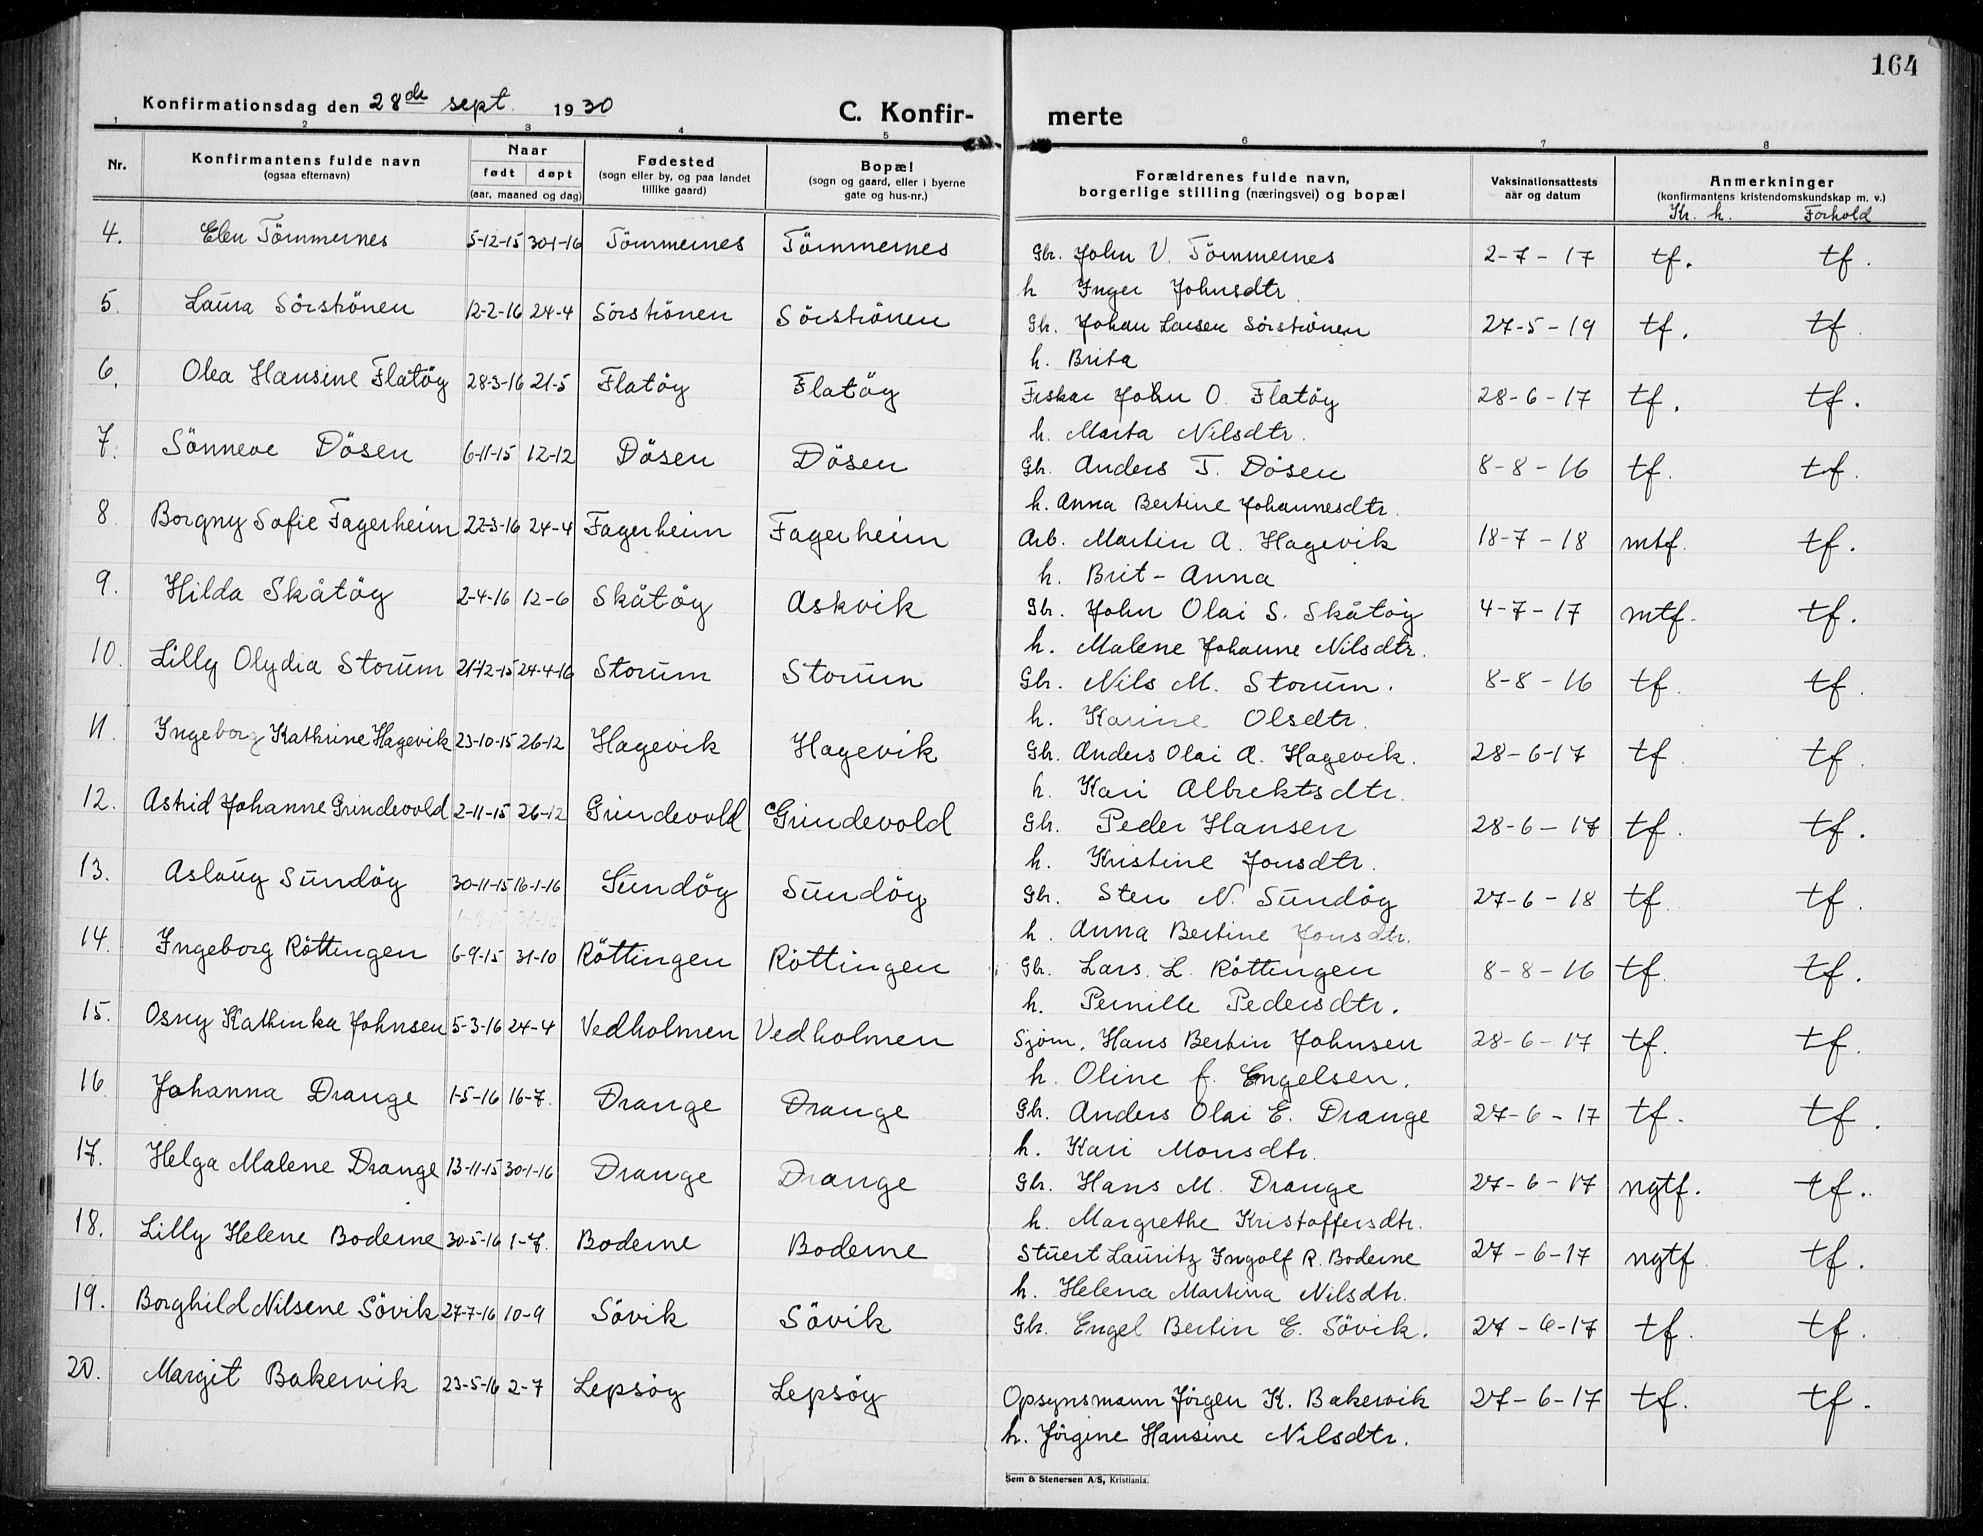 164
Konfirmationsdag den 28de sept. 1930
C. Konfir- merte
1 2 3 4 5 6 7 8
Nr. | Konfirmantens fulde navn (ogsaa efternavn) | Naar født døpt (aar, maaned og dag) | Fødested (sogn eller by, og paa landet tillike gaard) | Bopæl (sogn og gaard, eller i byerne gate og hus-nr.) | Forældrenes fulde navn, borgerlige stilling (næringsvei) og bopæl | Vaksinationsattests aar og datum | Anmerkninger (konfirmantens kristendomskundskap m. v.)
Kr. h. Forhold
4. Elen Tömmernes 5-12-15 30-1-16 Tömmernes Tömmernes Gbr. John V. Tömmernes 2-7-17 tf. tf.
h Inger Johnsdtr.
5. Laura Sörströnen 12-2-16 24-4 Sörströnen Sörströnen Gb. Johan Larsen Sörströnen 27-5-19 tf. tf
h. Brita
6. Olea Hansine Flatöy 28-3-16 21-5 Flatöy Flatöy Fiskar John O. Flatöy 28-6-17 tf. tf.
h. Marta Nilsdtr.
7. Sönneve Dösen 6-11-15 12-12 Dösen Dösen Gb. Anders T. Dösen 8-8-16 tf. tf.
h. Anna Bertine Johannesdtr.
8. Borgny Sofie Fagerheim 22-3-16 24-4 Fagerheim Fagerheim Arb. Martin A. Hagevik 18-7-18 mtf. tf.
h. Brit-Anna
9. Hilda Skåtöy 2-4-16 12-6 Skåtöy Askvik Gb. John Olai S. Skåtöy 4-7-17 mtf. tf.
h. Malene Johanne Nilsdtr.
10. Lilly Olydia Storum 21-12-15 24-4-16 Storum Storum Gbr. Nils M. Storum. 8-8-16 tf. tf.
h. Karine Olsdtr.
11. Ingeborg Kathrine Hagevik 23-10-15 26-12 Hagevik Hagevik Gb. Anders Olai A. Hagevik. 28-6-17 tf tf.
h. Kari Albrektsdtr.
12. Astrid Johanne Grindevold 2-11-15 26-12 Grindevold Grindevold Gb. Peder Hansen 28-6-17 tf. tf.
h. Kristine Jonsdtr.
13. Aslaug Sundöy 30-11-15 16-1-16 Sundöy Sundöy Gbr. Sten N. Sundöy 27-6-18 tf. tf.
h. Anna Bertine Jonsdtr.
14. Ingeborg Röttingen 6-9-15 31-10 Röttingen Röttingen Gb. Lars L. Röttingen 8-8-16 tf. tf.
h. Pernille Pedersdtr.
15. Osny Kathinka Johnsen 5-3-16 24-4 Vedholmen Vedholmen Sjöm. Hans Bertin Johnsen 28-6-17 tf. tf.
h. Oline f. Engelsen.
16 Johanna Drange 1-5-16 16-7. Drange Drange Gb. Anders Olai E. Drange 27-6-17 tf. tf.
h. Kari Monsdtr.
17. Helga Malene Drange 13-11-15 30-1-16 Drange Drange Gb. Hans M. Drange 27-6-17 ngtf. tf.
h. Margrethe Kristoffersdtr.
18. Lilly Helene Boderne 30-5-16 1-7. Boderne Boderne Stuert Lauritz Ingolf R. Boderne 27-6-17 ngtf tf.
h. Helena Martina Nilsdtr.
19. Borghild Nilsene Sövik 27-7-16 10-9 Sövik Sövik Gbr. Engel Bertin E. Sövik. 27-6-17 tf. tf.
20. Margit Bakervik 23-5-16 2-7 Lepsöy Lepsöy Opsynsmann Jörgen K. Bakervik 27-6-17 tf. tf.
h. Jörgine Hansine Nilsdtr.
Sem & Stenersen A/S, Kristiania.